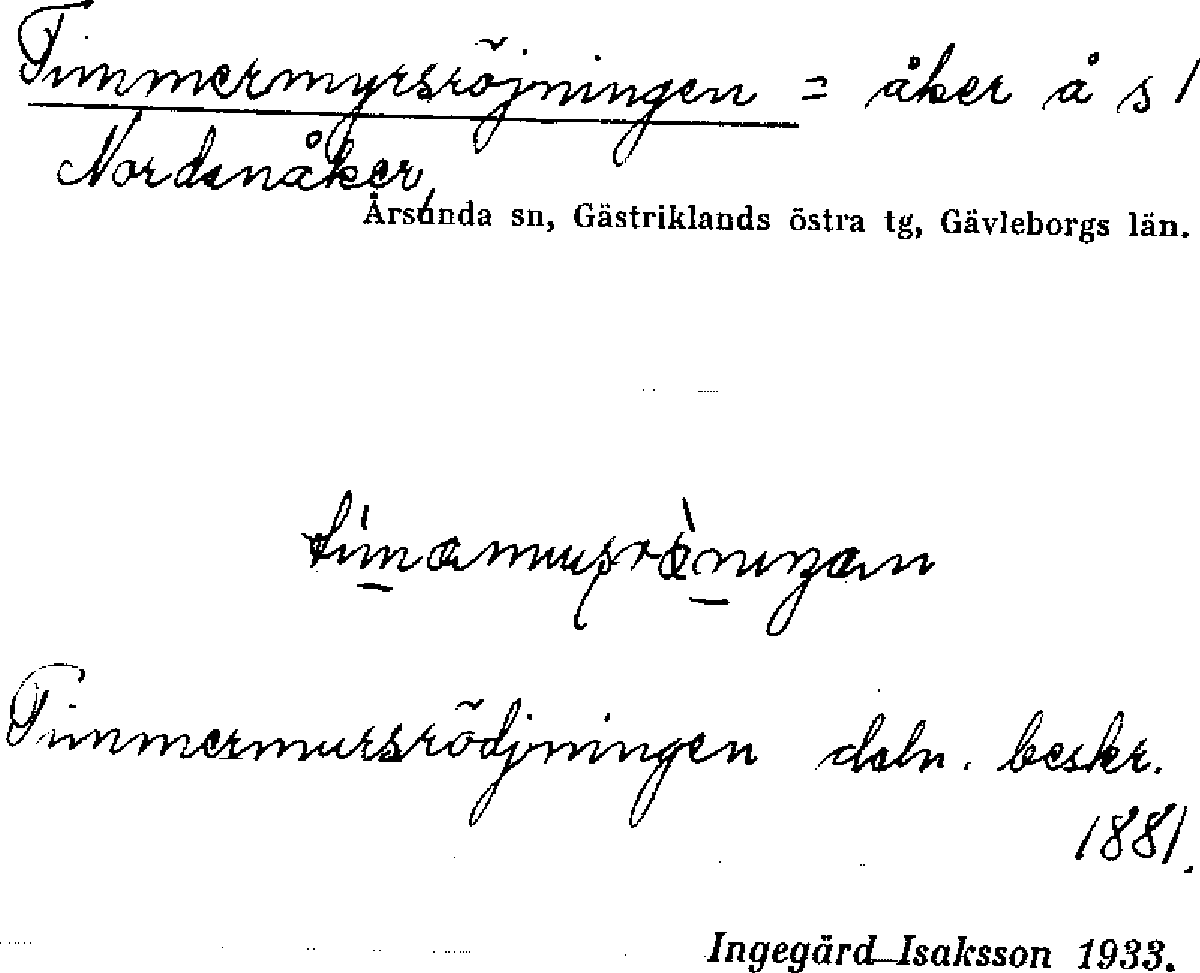 Timmermyrsröjningen = åker å s /
Nordanåker,
Årsunda sn, Gästriklands östra tg, Gävleborgs län.
Timmermursrödjningen daln. beskr.
1881.
Ingegärd Isaksson 1933.